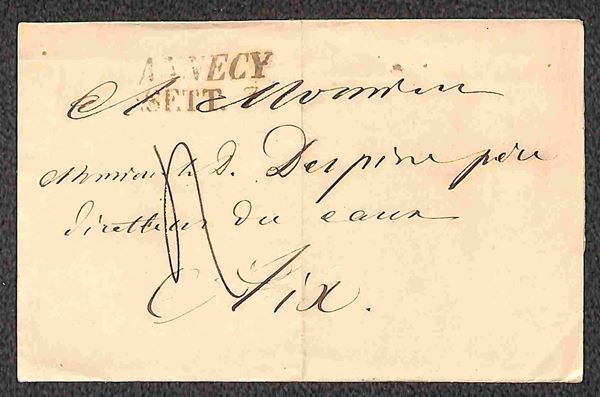 ANNECY
SETT. 7
A Monsieur
Monsieur le D. Despine père
directeur des eaux
Aix.